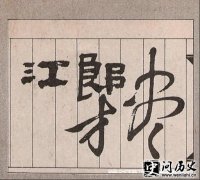 江郎才尽
问历史